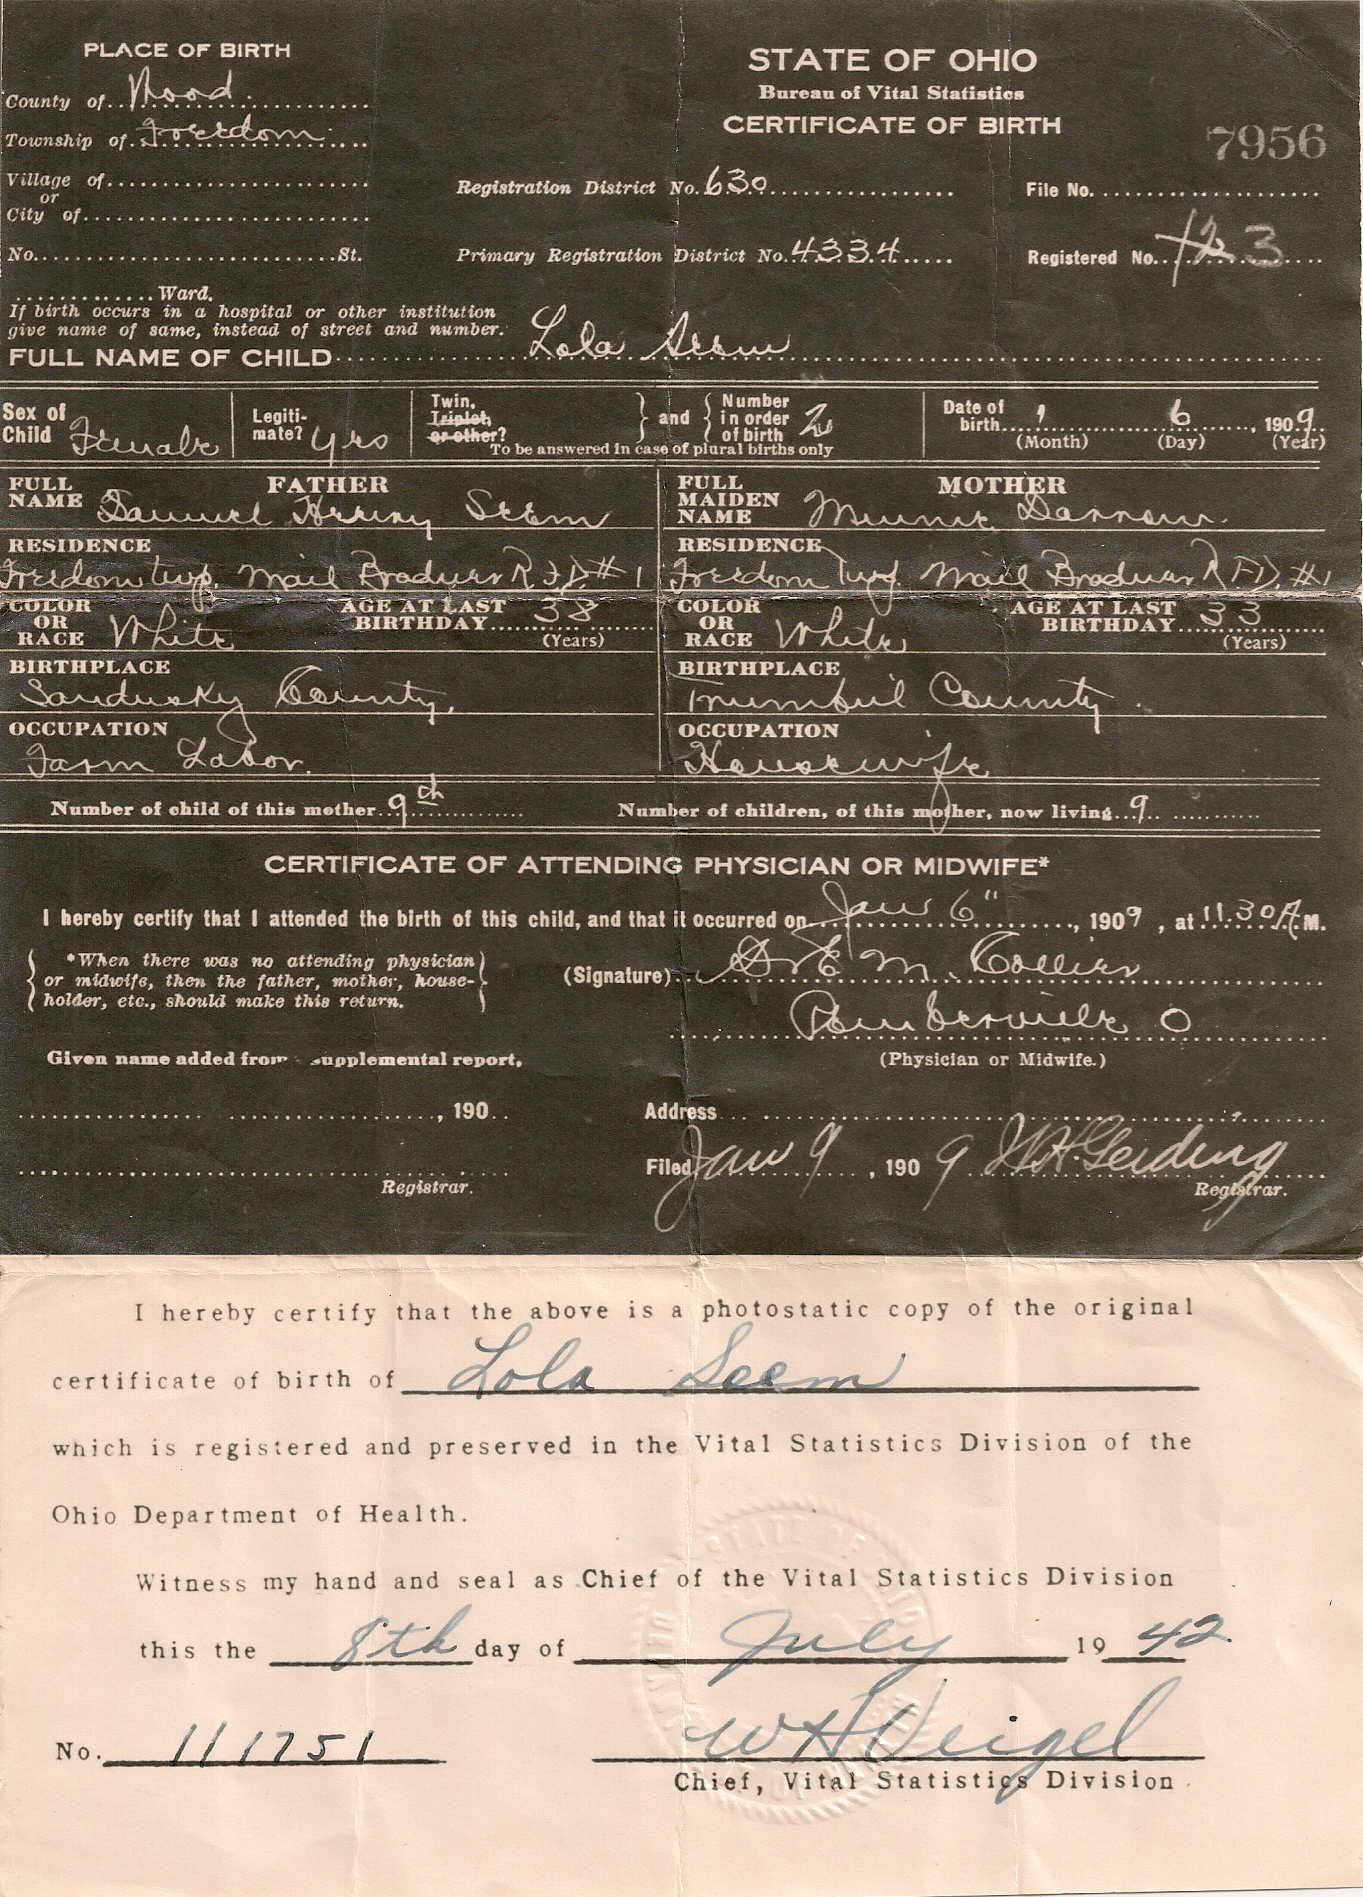 PLACE OF BIRTH
County of Wood
Township of Freedom
Village of
or
City of
No. St.
Ward.
If birth occurs in a hospital or other institution
give name of same, instead of street and number.
STATE OF OHIO
Bureau of Vital Statistics
CERTIFICATE OF BIRTH
7956
Registration District No. 630
File No.
Primary Registration District No. 4334
Registered No. 3
FULL NAME OF CHILD Lola Seem
Sex of Child Female
Legiti-mate? Yes
Twin, Triplet, or other? and Number in order of birth 2
To be answered in case of plural births only
Date of birth 1 6, 1909
(Month) (Day) (Year)
FATHER
FULL NAME Samuel Henry Seem
RESIDENCE
Freedom twp. Mail Bradner R.F.D. #1
COLOR OR RACE White
AGE AT LAST BIRTHDAY 38
(Years)
BIRTHPLACE
Sandusky County,
OCCUPATION
Farm Labor.
MOTHER
FULL MAIDEN NAME Minnie Darrow.
RESIDENCE
Freedom Twp. Mail Bradner RFD. #1
COLOR OR RACE White
AGE AT LAST BIRTHDAY 33
(Years)
BIRTHPLACE
Trumbull County.
OCCUPATION
Housewife
Number of child of this mother 9th
Number of children, of this mother, now living 9
CERTIFICATE OF ATTENDING PHYSICIAN OR MIDWIFE*
I hereby certify that I attended the birth of this child, and that it occurred on Jan 6", 1909, at 11.30 A.M.
*When there was no attending physician
or midwife, then the father, mother, house-
holder, etc., should make this return.
(Signature) Dr E M. Collier
Pemberville O
(Physician or Midwife.)
Given name added from supplemental report,
, 190
Registrar.
Address
Filed Jan 9, 1909
Registrar.
I hereby certify that the above is a photostatic copy of the original
certificate of birth of Lola Seem
which is registered and preserved in the Vital Statistics Division of the
Ohio Department of Health.
Witness my hand and seal as Chief of the Vital Statistics Division
this the 8th day of July 19 42
No. 111751
W H Veigel
Chief, Vital Statistics Division